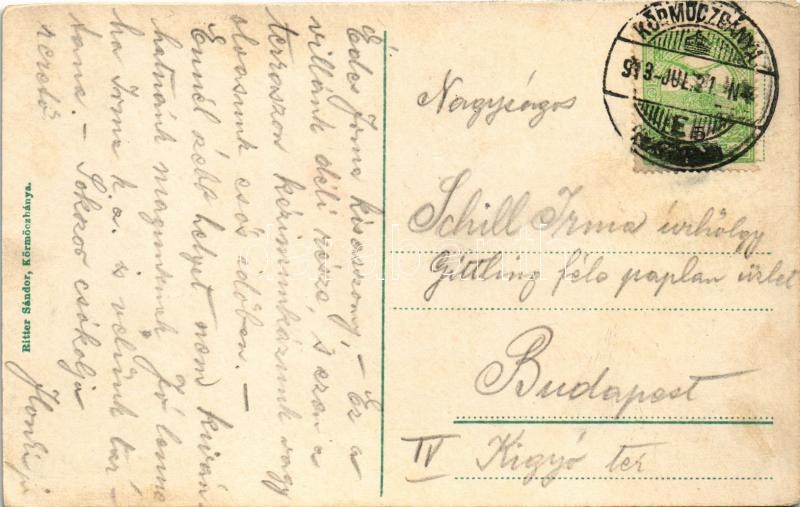 Édes Irma kisasszony, – Ez a
villánk déli része, s ezen a
teraszon kézimunkázunk vagy
olvasunk esős időben. –
Ennél szebb helyet nem kíván-
hatnánk magunknak. Jó lenne
ha Irma k. a. is velünk tar-
tana. – Sokszor csókolja
szerető
Ritter Sándor, Körmöczbánya.
KÖRMÖCZBÁNYA
913 - JUL. 21
Nagyságos
Schill Irma úrhölgy
Gittling féle paplan üzlet
Budapest
IV Kigyó tér